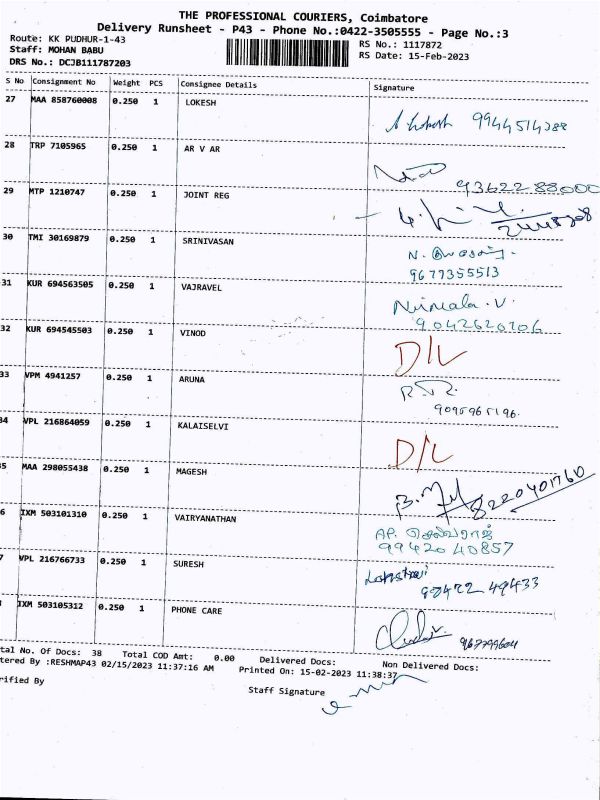 THE PROFESSIONAL COURIERS, Coimbatore
Delivery Runsheet - P43 - Phone No.:0422-3505555 - Page No.:3
Route: KK PUDHUR-1-43 RS No.: 1117872
Staff: MOHAN BABU RS Date: 15-Feb-2023
DRS No.: DCJB111787203
S No Consignment No Weight PCS Consignee Details Signature
27 MAA 858760008 0.250 1 LOKESH
9944514388
28 TRP 7105965 0.250 1 AR V AR
9362288000
29 MTP 1210747 0.250 1 JOINT REG
30 TMI 30169879 0.250 1 SRINIVASAN
9677355513
31 KUR 694563505 0.250 1 VAJRAVEL
Nirmala.V.
9042620706
32 KUR 694545503 0.250 1 VINOD
D/L
33 VPM 4941257 0.250 1 ARUNA
9095965196.
34 VPL 216864059 0.250 1 KALAISELVI
D/L
5 MAA 298055438 0.250 1 MAGESH
8220401760
6 IXM 503101310 0.250 1 VAIRYANATHAN
AP. செல்வராஜ்
99420 40857
7 VPL 216766733 0.250 1 SURESH
98472 49433
IXM 503105312 0.250 1 PHONE CARE
967799604
tal No. Of Docs: 38 Total COD Amt: 0.00 Delivered Docs: Non Delivered Docs:
tered By :RESHMAP43 02/15/2023 11:37:16 AM Printed On: 15-02-2023 11:38:37
rified By Staff Signature